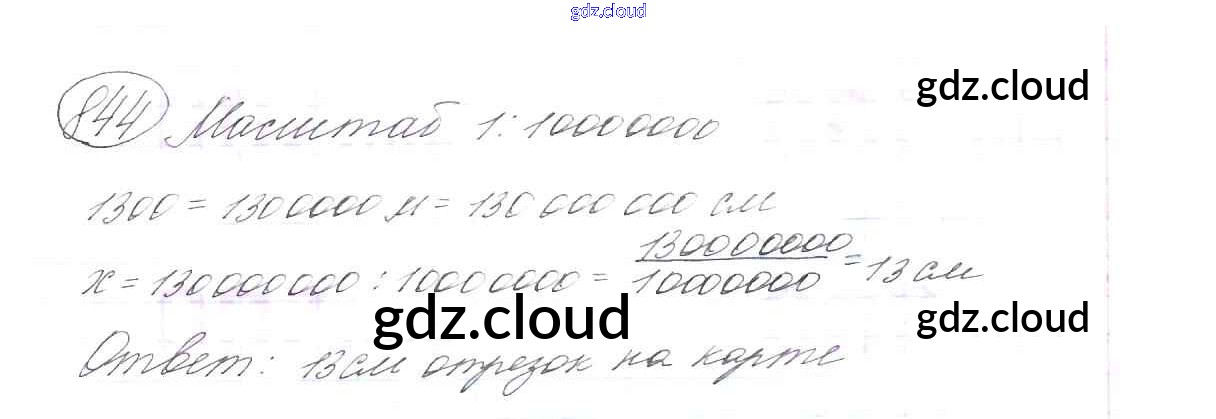 gdz.cloud
gdz.cloud
844 Масштаб 1:10000000
1300 = 1300000 м = 130 000 000 см
x = 130000000 : 10000000 = 130000000 / 10000000 = 13 см
gdz.cloud
gdz.cloud
Ответ: 13 см отрезок на карте